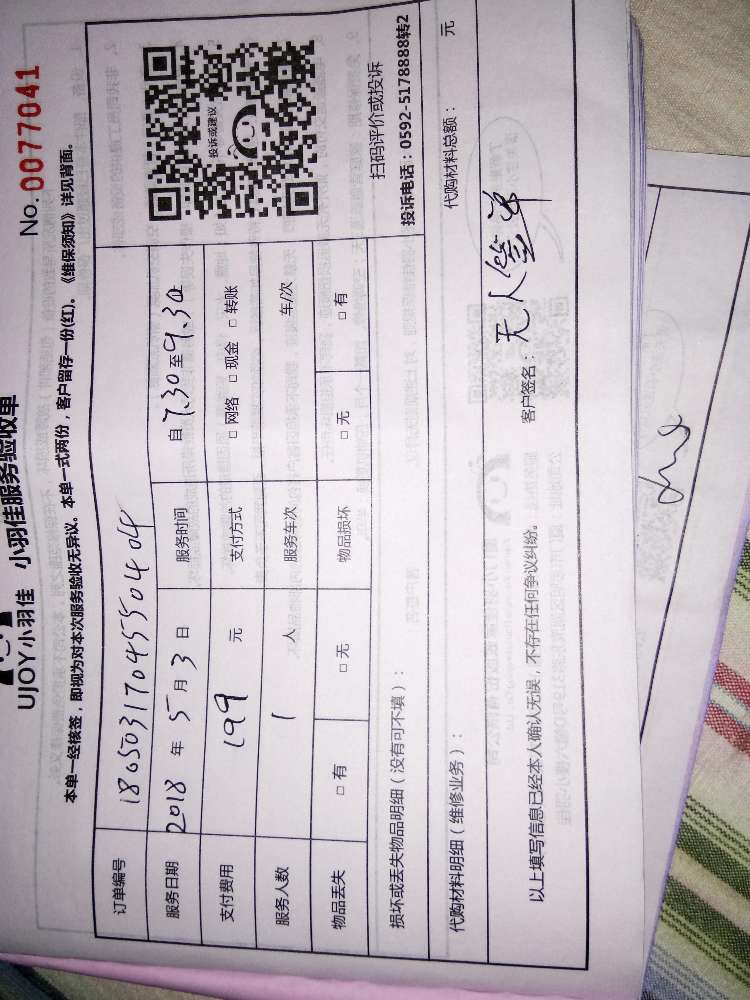 UJOY小羽佳 小羽佳服务验收单
No. 0077041
本单一经核签，即视为对本次服务验收无异议。本单一式两份，客户留存一份(红)。《维保须知》详见背面。
订单编号 180503170455040
服务日期 2018 年 5 月 3 日 服务时间 自 7.30 至 9.30
支付费用 199 元 支付方式 □ 网络 □ 现金 □ 转账
服务人数 1 人 服务车次 车/次
物品丢失 □ 有 □ 无 物品损坏 □ 无 □ 有
投诉或建议
扫码评价或投诉
投诉电话：0592-5178888转2
损坏或丢失物品明细（没有可不填）：
代购材料明细（维修业务）： 代购材料总额： 元
以上填写信息已经本人确认无误，不存在任何争议纠纷。 客户签名：无人签单